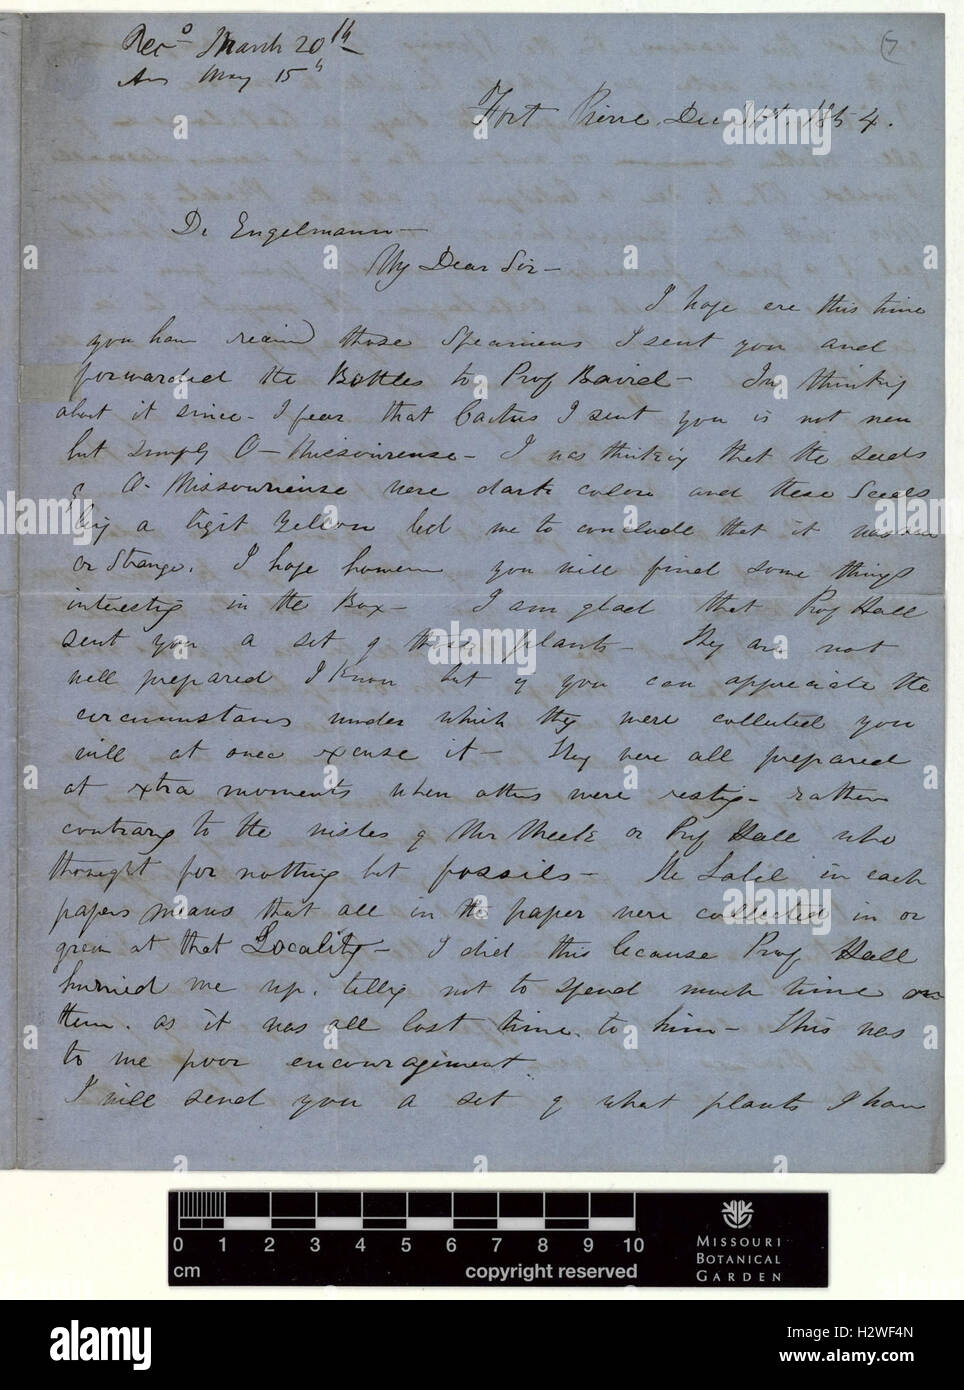 Rec^d March 20^th
Ans May 15^th
7
Fort Pierre, Dec 1854.
Dr Engelmann—
My Dear Sir—
I hope ere this time
you have received those Specimens I sent you and
forwarded the Bottles to Prof Baird— In thinking
about it since— I fear that Cactus I sent you is not new
but simply O— Missouriense— I was thinking that the seeds
of O— Missouriense were dark colore and these Seeds
being a light Yellow led me to conclude that it was
or Strange. I hope however you will find some things
interesting in the Box— I am glad that Prof Hall
sent you a set of those plants— They are not
well prepared I know but if you can appreciate the
circumstances under which they were collected you
will at once excuse it— They were all prepared
at extra moments when others were resting— rather
contrary to the wishes of Mr Meek or Prof Hall who
thought for nothing but fossils— The Label in each
papers means that all in the paper were collected in or
grew at that Locality— I did this because Prof Hall
hurried me up, telling not to spend much time on
them, as it was all lost time, to him— This was
to me poor encouragement
I will send you a set of what plants I have
0 1 2 3 4 5 6 7 8 9 10
cm
copyright reserved
MISSOURI
BOTANICAL
GARDEN
alamy
alamy stock photo
H2WF4N
www.alamy.com